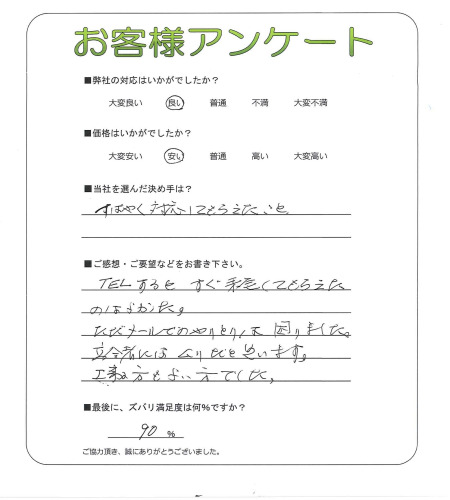 お客様アンケート
■弊社の対応はいかがでしたか？
大変良い 良い 普通 不満 大変不満
■価格はいかがでしたか？
大変安い 安い 普通 高い 大変高い
■当社を選んだ決め手は？
すばやく対応してもらえたこと
■ご感想・ご要望などをお書き下さい。
TELするとすぐ してもらえた
のはよかた。
ただメールでのやりとりは困りました。
立会者には と思います。
工事の方もよい方でした。
■最後に、ズバリ満足度は何％ですか？
90 %
ご協力頂き、誠にありがとうございました。